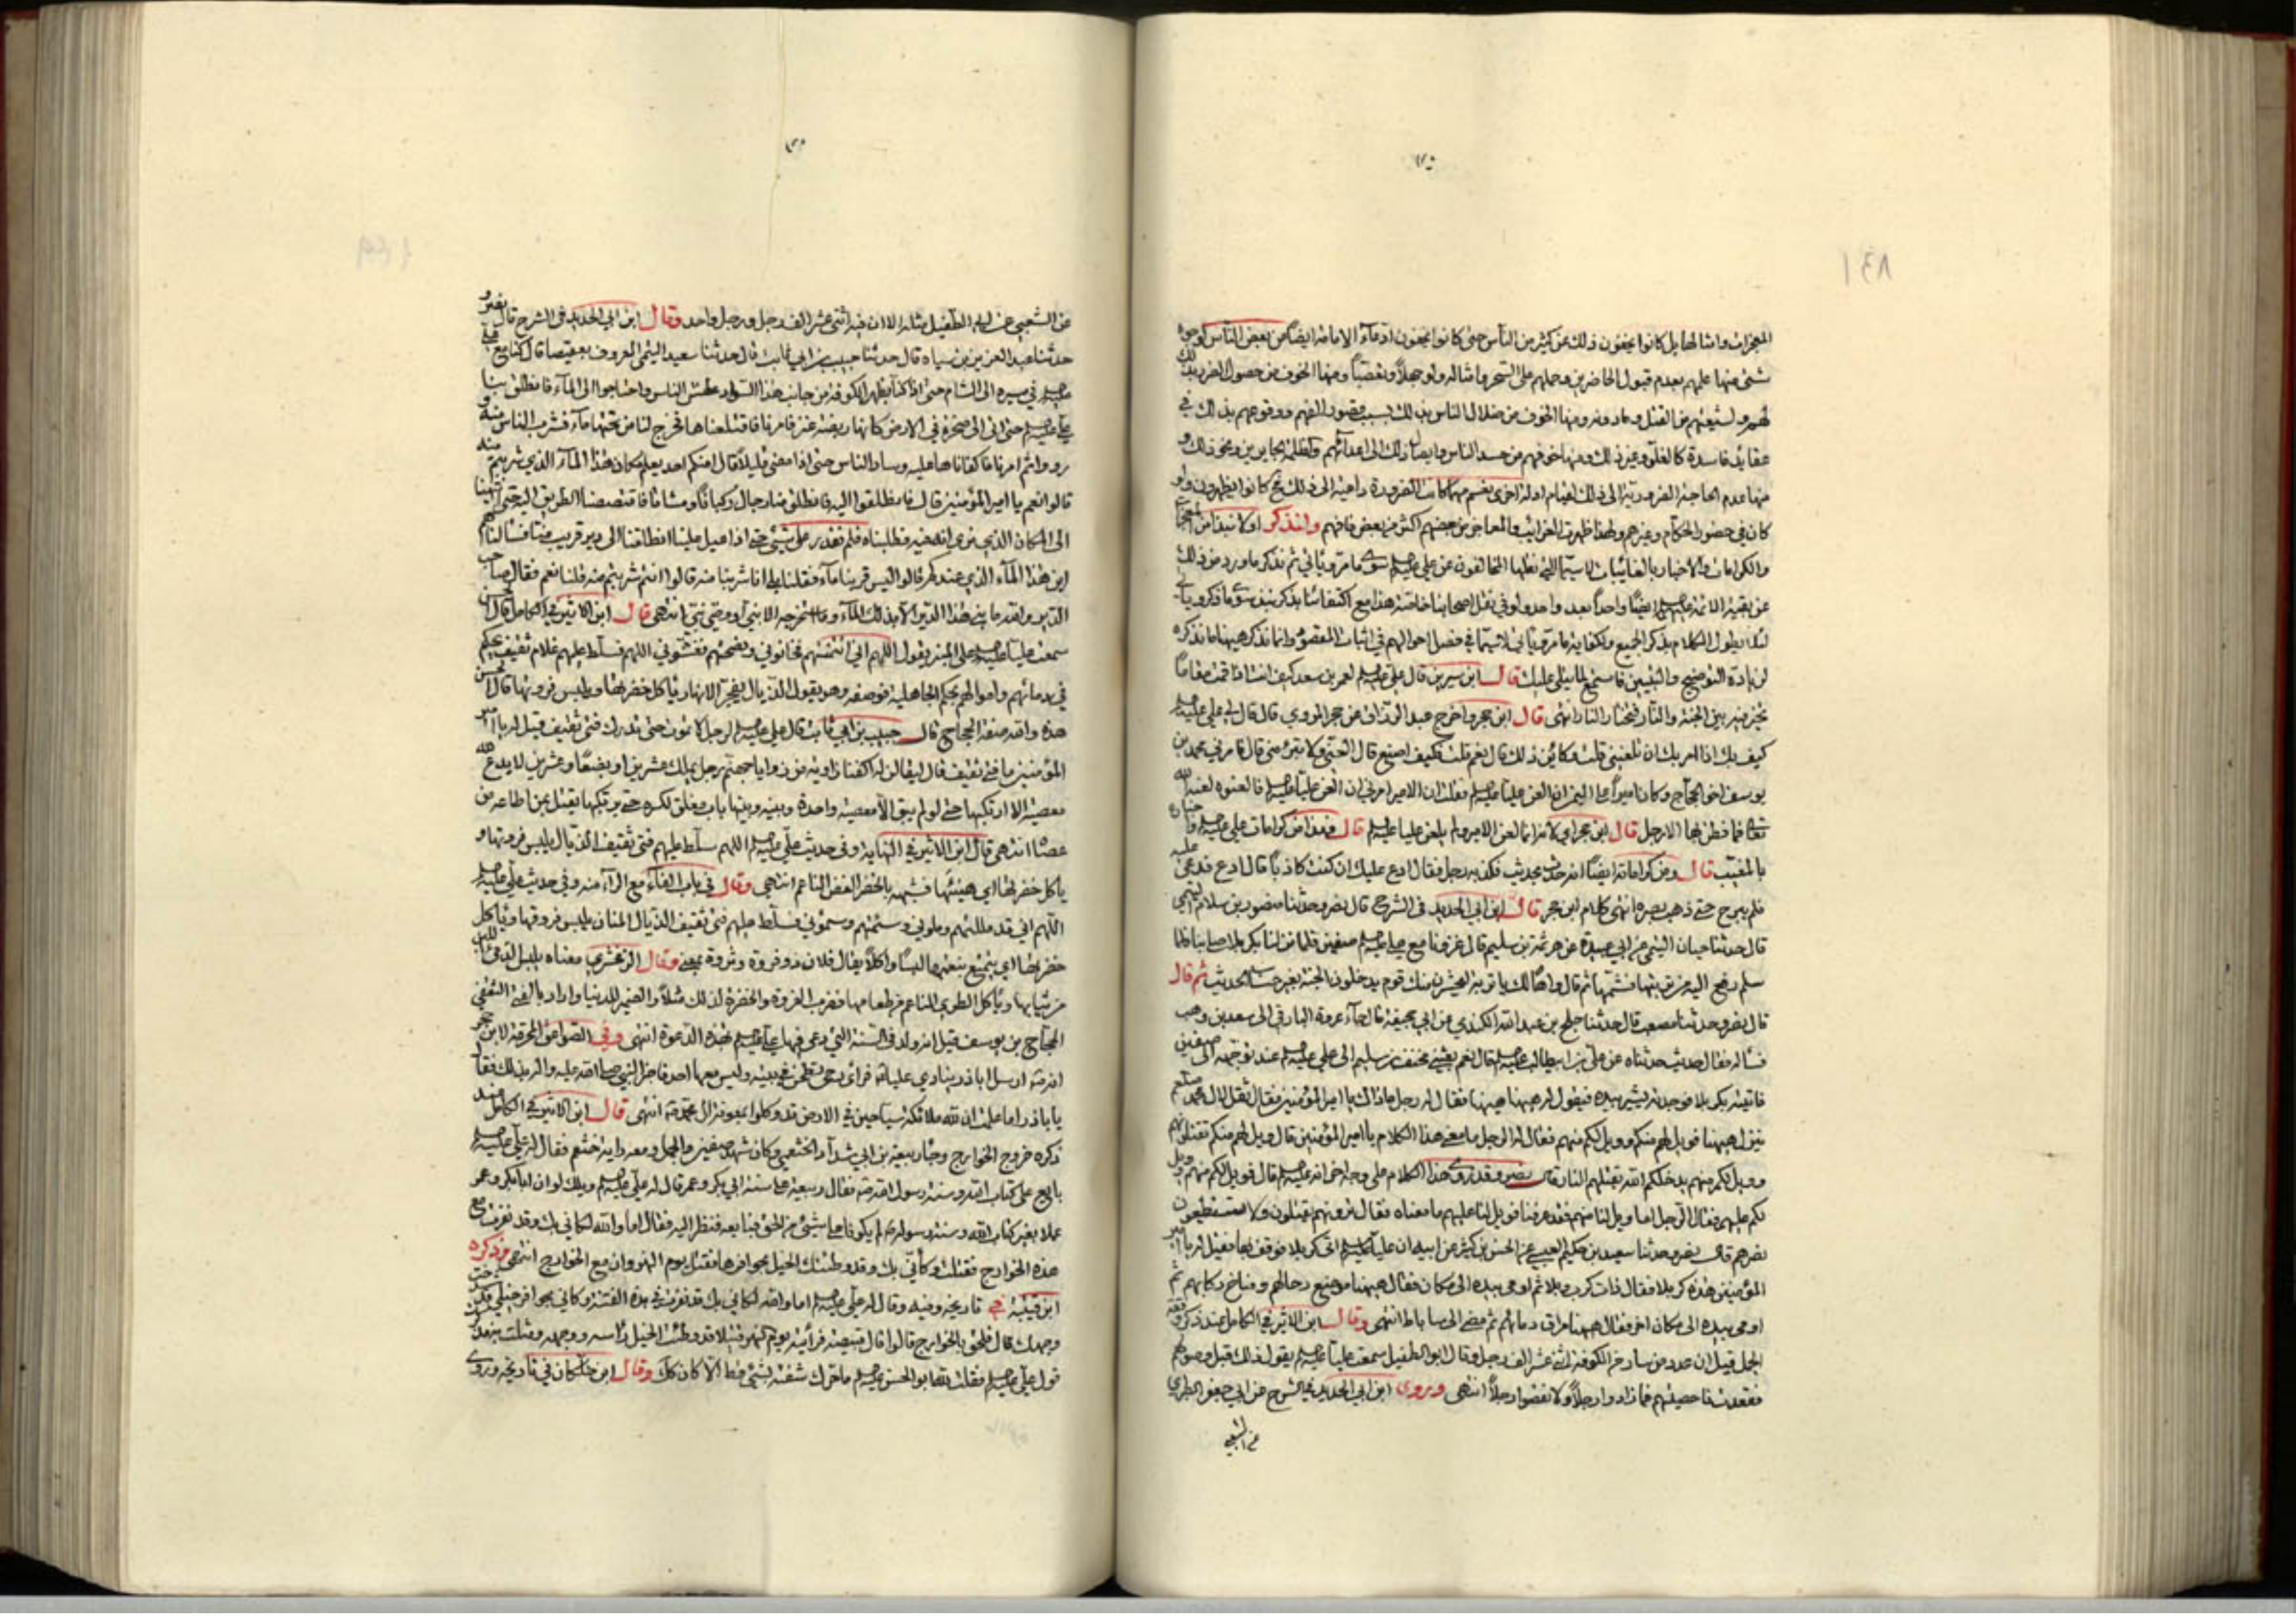 المعجزات وامثالها بل كانوا يخفون ذلك عن كثير من الناس حتى كانوا يخفون ادعاء الامامة ايضا عن بعض الناس لوجوه
شتى منها علمهم بعدم قبول الحاضرين وحملهم على السحر وامثاله ولو جهلا وتعصبا ومنها الخوف من حصول الضرر بذلك
لهم ولشيعتهم من القتل وما دونه ومنها الخوف من ضلال الناس بذلك بسبب قصور الفهم ووقوعهم بذلك في
عقايد فاسدة كالغلو وغير ذلك ومنها خوفهم من حسد الناس وايصال ذلك الى اعدائهم والظلمة الجايرين ونحو ذلك و
منها عدم الحاجة الضرورية الى ذلك لقيام ادلة اخرى نعم مهما كانت الضرورة داعية الى ذلك كانوا يظهرون ولو
كان في حضور الحكام وغيرهم ولهذا ظهرت الغرائب والمعاجز من بعضهم اكثر من بعض فافهم ولنذكر اولا نبذا من المعجزات
والكرامات والاخبار بالغايبات لا سيما التي نقلها المخالفون عن علي عليه السلام سوى ما مر ويأتي ثم نذكر ما ورد من ذلك
عن بقية الائمة عليهم السلام ايضا واحدا بعد واحد ولو في نقل اصحابنا خاصة هذا مع اكتفائنا بذكر نبذ سوى ما ذكر ويأتي
لئلا يطول الكلام بذكر الجميع ولكفاية ما مر ويأتي لا سيما في فصل احوالهم في اثبات المقصود وانما نذكر هيهنا ما نذكره
لزيادة التوضيح والتبيين فاستمع لما يتلى عليك قال ابن سيرين قال علي عليه السلام لعمر بن سعد كيف انت اذا قمت مقاما
تخير فيه بين الجنة والنار فتختار النار انتهى قال ابن حجر واخرج عبد الرزاق عن حجر المرادي قال قال لي علي عليه السلام
كيف بك اذا امر بك ان تلعنني قلت وكائن ذلك قال نعم قلت فكيف اصنع قال العنّي ولا تبرء مني قال فامرني محمد بن
يوسف اخو الحجاج وكان اميرا على اليمن ان العن عليا عليه السلام فقلت ان الامير امرني ان العن عليا عليه السلام فالعنوه لعنه الله
فما فطن لها الا رجل قال ابن حجر اي لانه انما لعن الامير ولم يلعن عليا عليه السلام قال فهذا من كرامات علي عليه السلام واخباره
بالمغيب قال ومن كراماته ايضا انه حدث بحديث فكذبه رجل فقال ادع عليك ان كنت كاذبا قال ادع فدعى عليه
فلم يبرح حتى ذهب بصره انتهى كلام ابن حجر قال ابن ابي الحديد في الشرح قال نصر وحدثنا منصور بن سلام التيمي
قال حدثنا حيان التيمي عن ابي عبيدة عن هرثمة بن سليم قال غزونا مع علي عليه السلام صفين فلما نزلنا بكربلا صلى بنا فلما
سلم رفع اليه من تربتها فشمها ثم قال واها لك يا تربة ليحشرن منك قوم يدخلون الجنة بغير حساب الحديث ثم قال
قال نصر وحدثنا مصعب قال حدثنا اجلح بن عبد الله الكندي عن ابي جحيفة قال جاء عروة البارقي الى سعد بن وهب
فسأله فقال حديث حدثتناه عن علي بن ابيطالب عليه السلام قال نعم بعثني مخنف بن سليم الى علي عليه السلام عند توجهه الى صفين
فاتيته بكربلا فوجدته يشير بيده فيقول هيهنا هيهنا فقال له رجل ماذاك يا امير المؤمنين فقال ثقل لال محمد
ينزل هيهنا فويل لهم منكم وويل لكم منهم فقال له الرجل ما معنى هذا الكلام يا امير المؤمنين قال ويل لهم منكم تقتلونهم
وويل لكم منهم يدخلكم الله بقتلهم النار قال نصر وقد روى هذا الكلام على وجه اخر انه عليه السلام قال فويل لكم منهم وويل
لكم عليهم فقال الرجل اما ويل لنا منهم فقد عرفنا فويل لنا عليهم ما معناه فقال ترونهم يقتلون ولا تستطيعون
نصرهم قال نصر وحدثنا سعيد بن حكيم العبسي عن الحسن بن كثير عن ابيه ان عليا عليه السلام اتى كربلا فوقف بها فقيل له يا امير
المؤمنين هذه كربلا فقال ذات كرب وبلاء ثم اومى بيده الى مكان فقال هيهنا موضع رحالهم ومناخ ركابهم ثم
اومى بيده الى مكان اخر فقال هيهنا مراق دمائهم ثم مضى الى ساباط انتهى وقال ابن الاثير في الكامل عند ذكر وقعة
الجمل قيل ان عدد من سار من الكوفة اثنى عشر الف رجل وقال ابو الطفيل سمعت عليا عليه السلام يقول ذلك قبل وصولهم
فقعدت فاحصيتهم فما زادوا رجلا ولا نقصوا رجلا انتهى وروى ابن ابي الحديد في الشرح عن ابي جعفر الطبري
عن الشعبي
عن الشعبي عن ابي الطفيل مثله الا ان فيه اثنى عشر الف رجل ورجل واحد وقال ابن ابي الحديد في الشرح قال نصر و
حدثنا عبد العزيز بن سياه قال حدثنا حبيب بن ابي ثابت قال حدثنا سعيد التيمي المعروف بعقيصا قال كنا مع علي
عليه السلام في مسيره الى الشام حتى اذا كنا بظهر الكوفة من جانب هذا السواد عطش الناس واحتاجوا الى الماء فانطلق بنا
علي عليه السلام حتى اتى الى صخرة في الارض كانها ربضة عنز فامرنا فاقتلعناها فخرج لنا من تحتها ماء فشرب الناس منه و
رووا ثم امرنا فاكفاناها عليه وسار الناس حتى اذا مضى قليلا قال امنكم احد يعلم مكان هذا الماء الذي شربتم منه
قالوا نعم يا امير المؤمنين قال فانطلقوا اليه فانطلق منا رجال ركبانا ومشاتا فاقتصصنا الطريق اليه حتى انتهينا
الى المكان الذي نرى انه فيه فطلبناه فلم نقدر على شئ حتى اذا عيل علينا انطلقنا الى دير قريب منا فسالناهم
اين هذا الماء الذي عندكم قالوا ليس قربنا ماء فقلنا بلى انا شربنا منه قالوا انتم شربتم منه قلنا نعم فقال صاحب
الدير والله ما بني هذا الدير الا بذلك الماء وما استخرجه الا نبي او وصي نبي انتهى قال ابن الاثير في الكامل قال الحسن
سمعت عليا عليه السلام على المنبر يقول اللهم اني ائتمنتهم فخانوني ونصحتهم فغشوني اللهم فسلط عليهم غلام ثقيف يحكم
في دمائهم واموالهم بحكم الجاهلية فوصفه وهو يقول الذيال يفجر الانهار ياكل خضرتها ويلبس فروتها قال الحسن
هذه والله صفة الحجاج قال حبيب بن ابي ثابت قال علي عليه السلام لرجل لا تموت حتى تدرك فتى ثقيف قيل له يا امير
المؤمنين ما فتى ثقيف قال ليقالن له اكفنا زاوية من زوايا جهنم رجل يملك عشرين او بضعا وعشرين لا يدع لله
معصية الا ارتكبها حتى لو لم يبق الا معصية واحدة وبينه وبينها باب مغلق لكسره حتى يرتكبها يقتل بمن اطاعه من
عصاه انتهى قال ابن الاثير في النهاية وفي حديث علي عليه السلام اللهم سلط عليهم فتى ثقيف الذيال يلبس فروتها و
ياكل خضرتها اي هنيئها فشبهه بالخضر الغض الناعم انتهى وقال في باب الفاء مع الراء منه وفي حديث علي عليه السلام
اللهم اني قد مللتهم وملوني وسئمتهم وسئموني فسلط عليهم فتى ثقيف الذيال المنان يلبس فروتها ويأكل
خضرتها اي يتمتع بنعمتها لبسا واكلا يقال فلان ذو فروة وثروة بمعنى وقال الزمخشري معناه يلبس الدفئ اللين
من ثيابها ويأكل الطري الناعم من طعامها فضرب الفروة والخضرة لذلك مثلا والضمير للدنيا واراد بالفتى الثقفي
الحجاج بن يوسف قيل انه ولد في السنة التي دعى فيها علي عليه السلام بهذه الدعوة انتهى وفي الصواعق المحرقة لابن حجر
انه صلى ارسل اباذر ينادي عليا فراى رحى تطحن في بيته وليس معها احد فاخبر النبي صلى الله عليه واله بذلك فقال
يا باذر اما علمت ان لله ملائكة سياحين في الارض قد وكلوا بمعونة ال محمد انتهى قال ابن الاثير في الكامل عند
ذكره خروج الخوارج وجاء ربيعة بن ابي شداد الخثعمي وكان شهد صفين والجمل ومعه راية خثعم فقال له علي عليه السلام
بايع على كتاب الله وسنة رسول الله فقال ربيعة على سنة ابي بكر وعمر قال له علي عليه السلام ويلك لو ان ابا بكر وعمر
عملا بغير كتاب الله وسنة رسوله لم يكونا على شئ من الحق فبايعه فنظر اليه فقال اما والله لكاني بك وقد نفرت مع
هذه الخوارج فقتلت وكأني بك وقد وطئتك الخيل بحوافرها فقتل يوم النهروان مع الخوارج انتهى وذكره
ابن قتيبة في تاريخه وفيه وقال له علي عليه السلام اما والله لكاني بك قد نفرت في هذه الفتنة وكاني بحوافر خيلي قد
وجهك قال فلحق بالخوارج قالوا قال قبيصة فرأيته يوم النهر قتيلا قد وطئت الخيل رأسه ووجهه ومثلت به فذكرت
قول علي عليه السلام فقلت لله ابو الحسن عليه السلام ما حرك شفتيه بشئ قط الا كان كك وقال ابن خلكان في تاريخه وروى